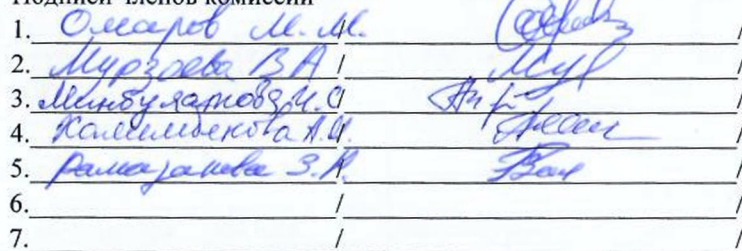 Подписи членов комиссии
1. Омаров М.М. / /
2. Мурзаева В А / Мур /
3. Минбулатова И.С / /
4. Халимбекова А.И. / /
5. Рамазанова З.К. / /
6. / /
7. / /